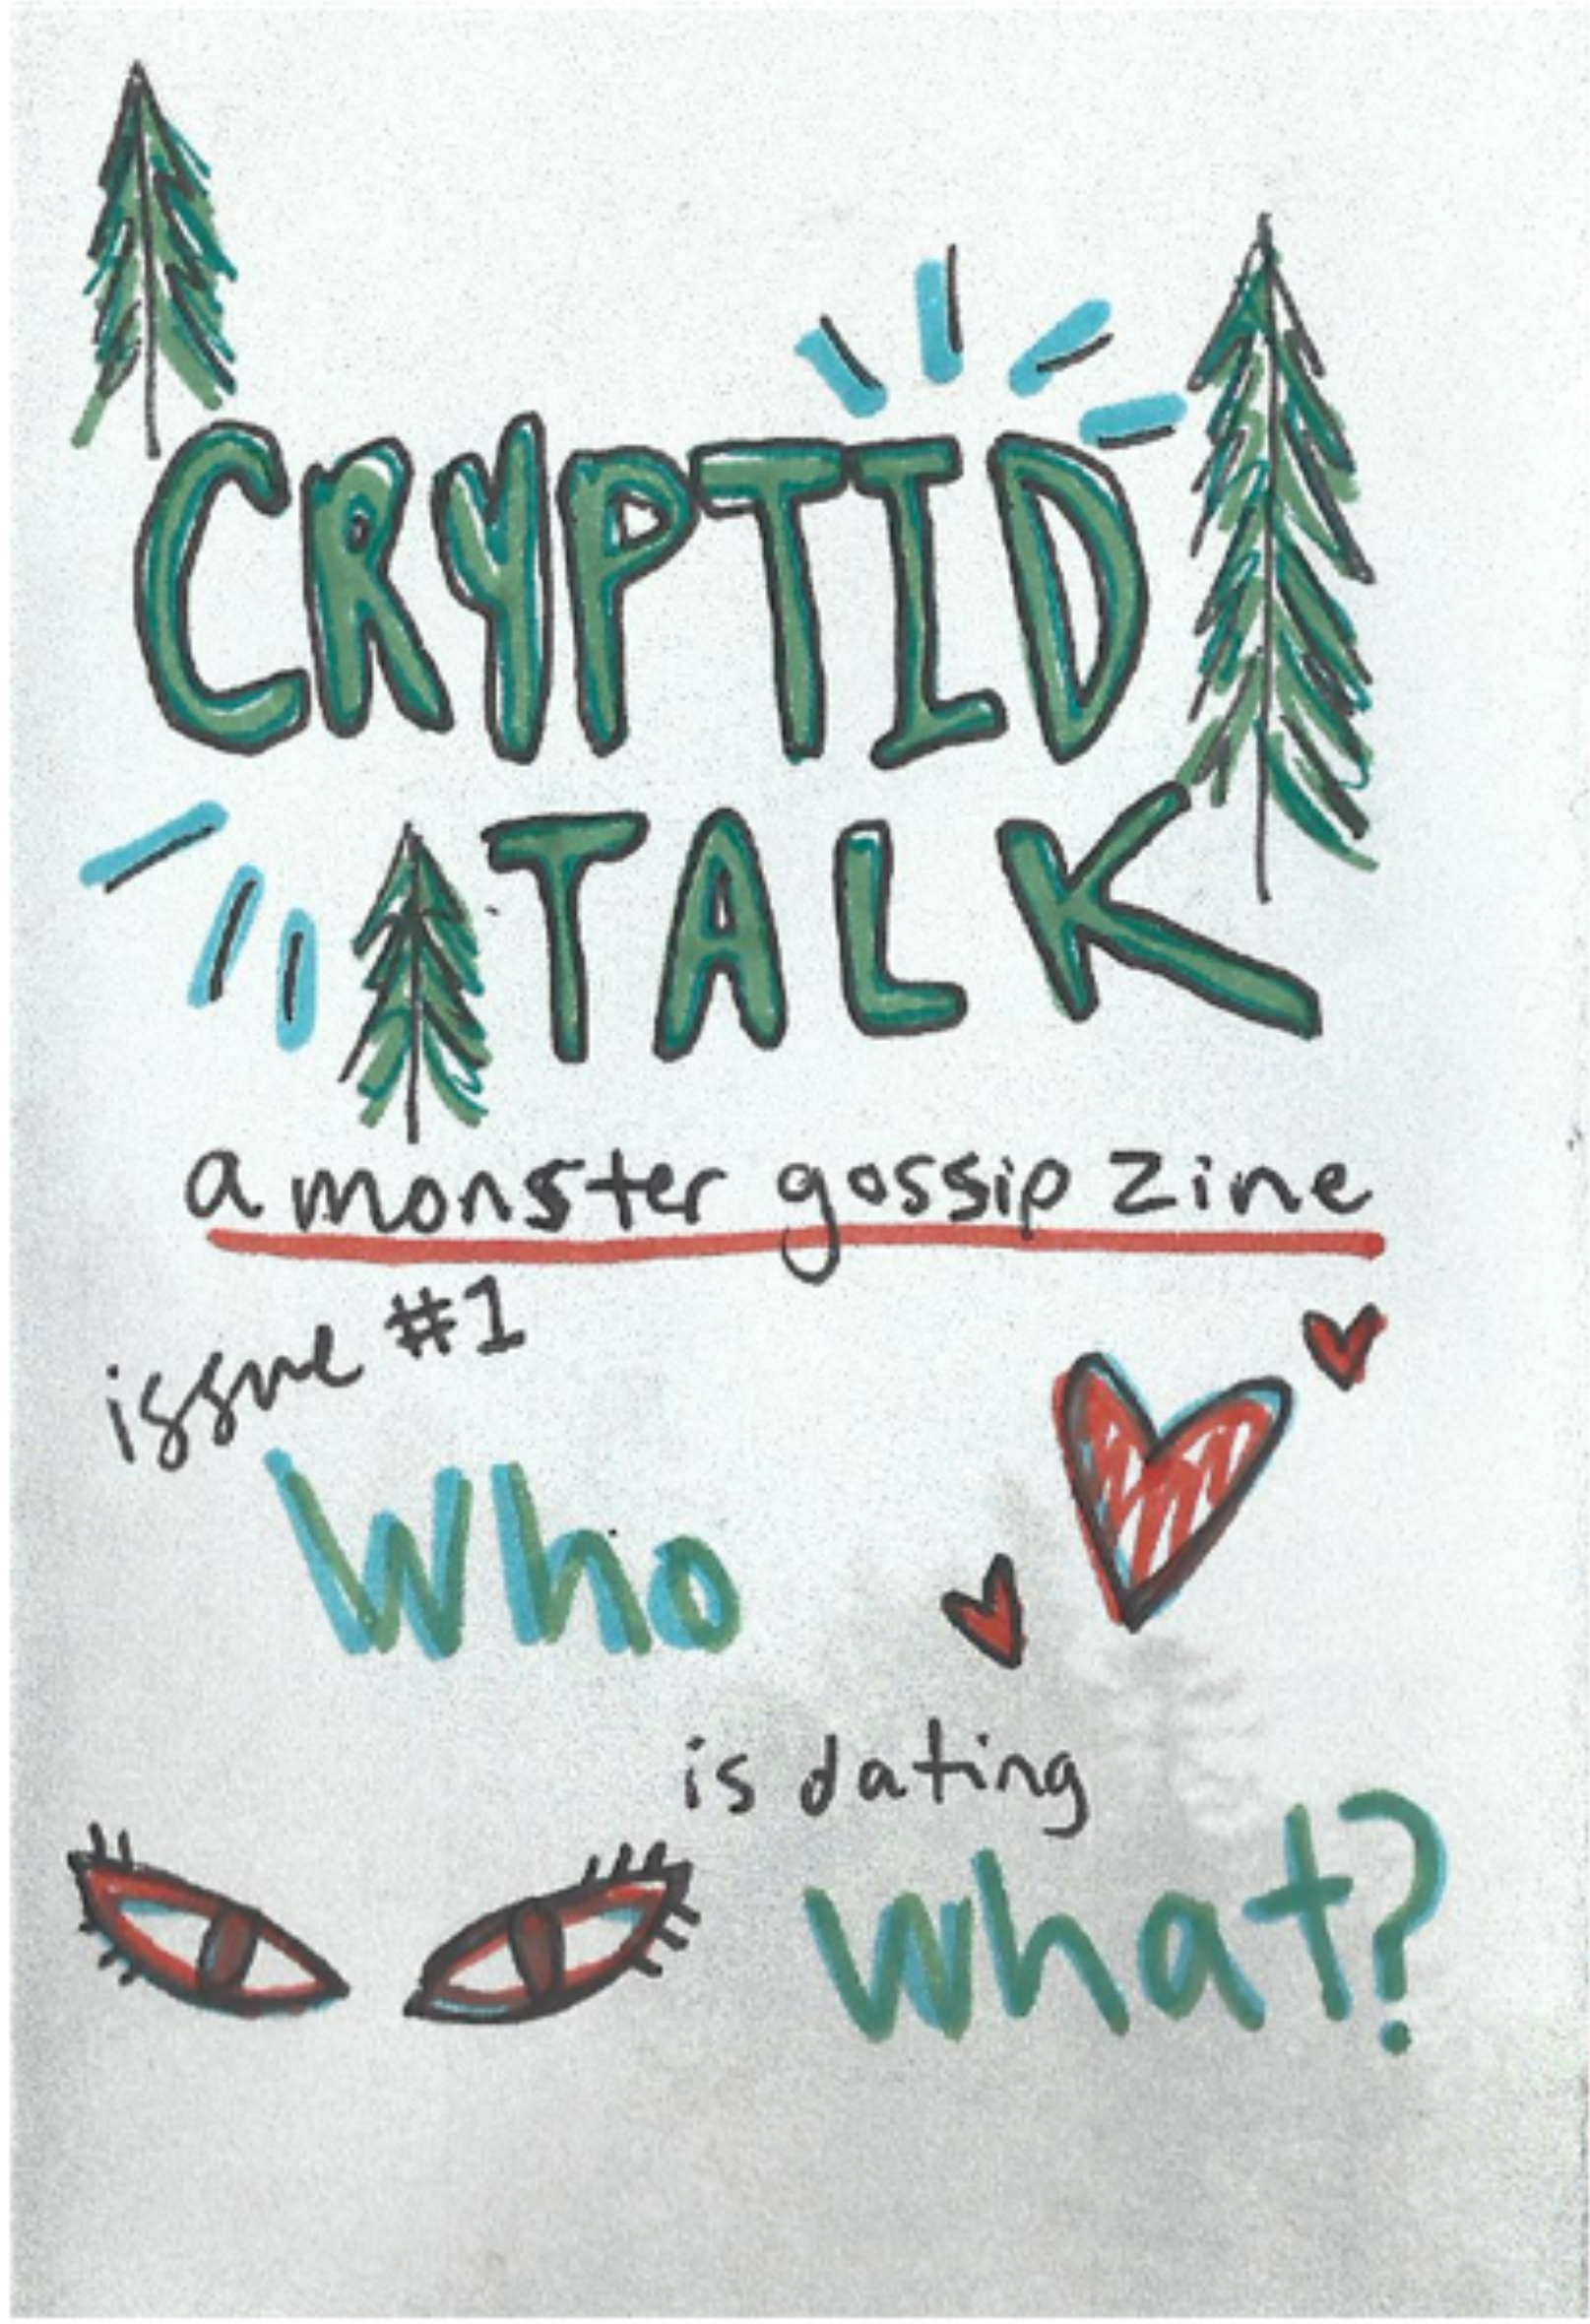 CRYPTID
TALK
a monster gossip zine
issue #1
Who
is dating
what?